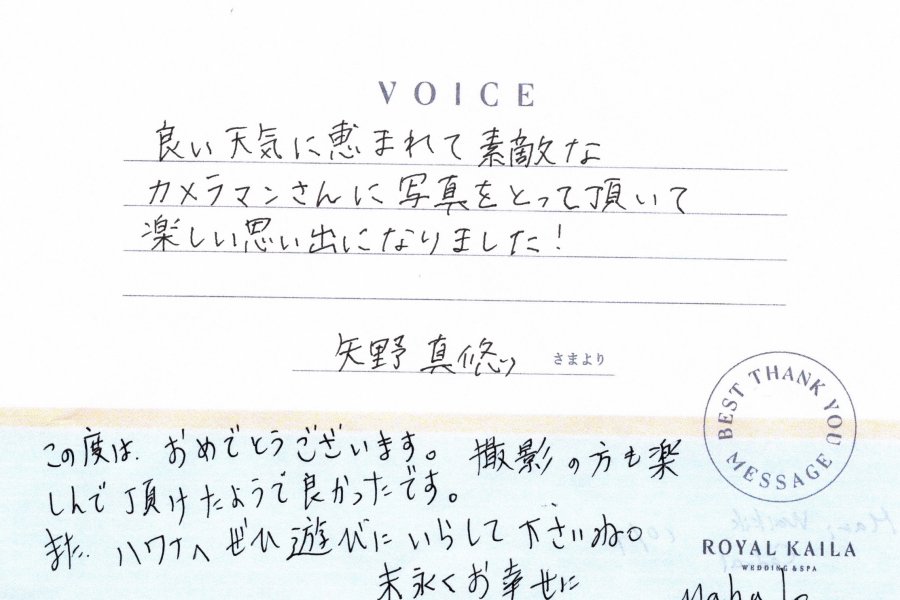 VOICE
良い天気に恵まれて素敵な
カメラマンさんに写真をとって頂いて
楽しい思い出になりました！
矢野 真悠 さまより
BEST THANK YOU MESSAGE
この度は、おめでとうございます。 撮影の方も楽
しんで頂けたようで良かったです。
また、ハワイへ ぜひ遊びにいらして下さいね。
ROYAL KAILA
WEDDING & SPA
末永くお幸せに